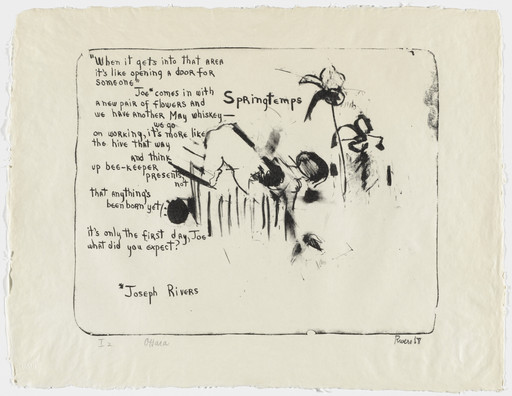 "When it gets into that area
it's like opening a door for
someone"
Joe* comes in with
a new pair of flowers and
we have another May whiskey—
we go
on working, it's more like
the hive that way
and think
up bee-keeper
presents,
not
that anything's
been born yet,
it's only the first day, Joe
what did you expect?
Springtemps
*Joseph Rivers
Rivers 58